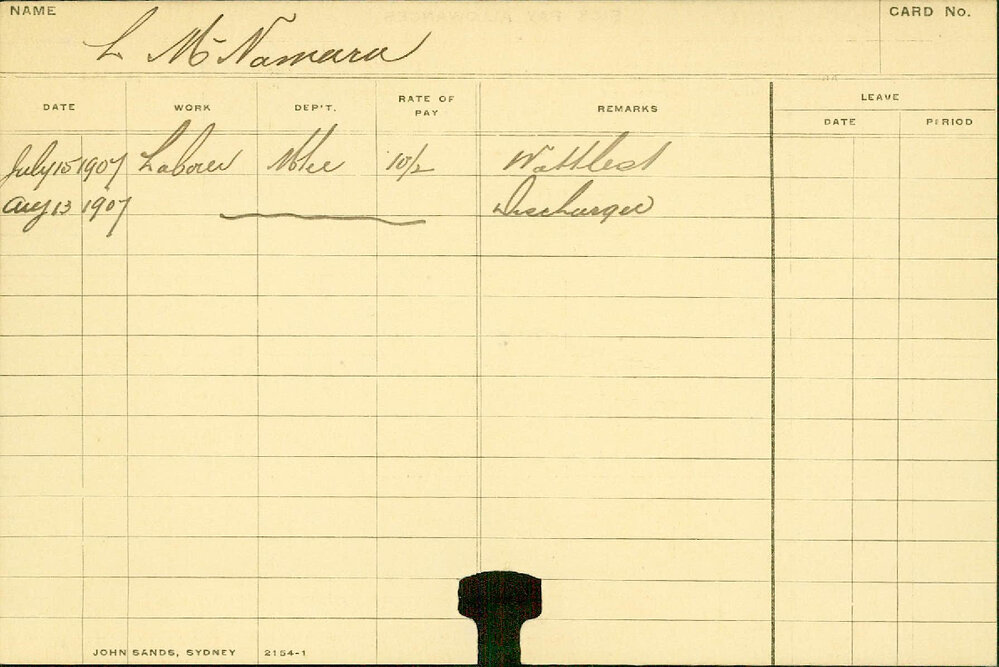 NAME
CARD No.
L McNamara
DATE WORK DEP'T. RATE OF PAY REMARKS LEAVE
DATE PERIOD
July 15 1907 Laborer 10/2 Wattle St
Aug 13 1907 Discharged
JOHN SANDS, SYDNEY 2154-1